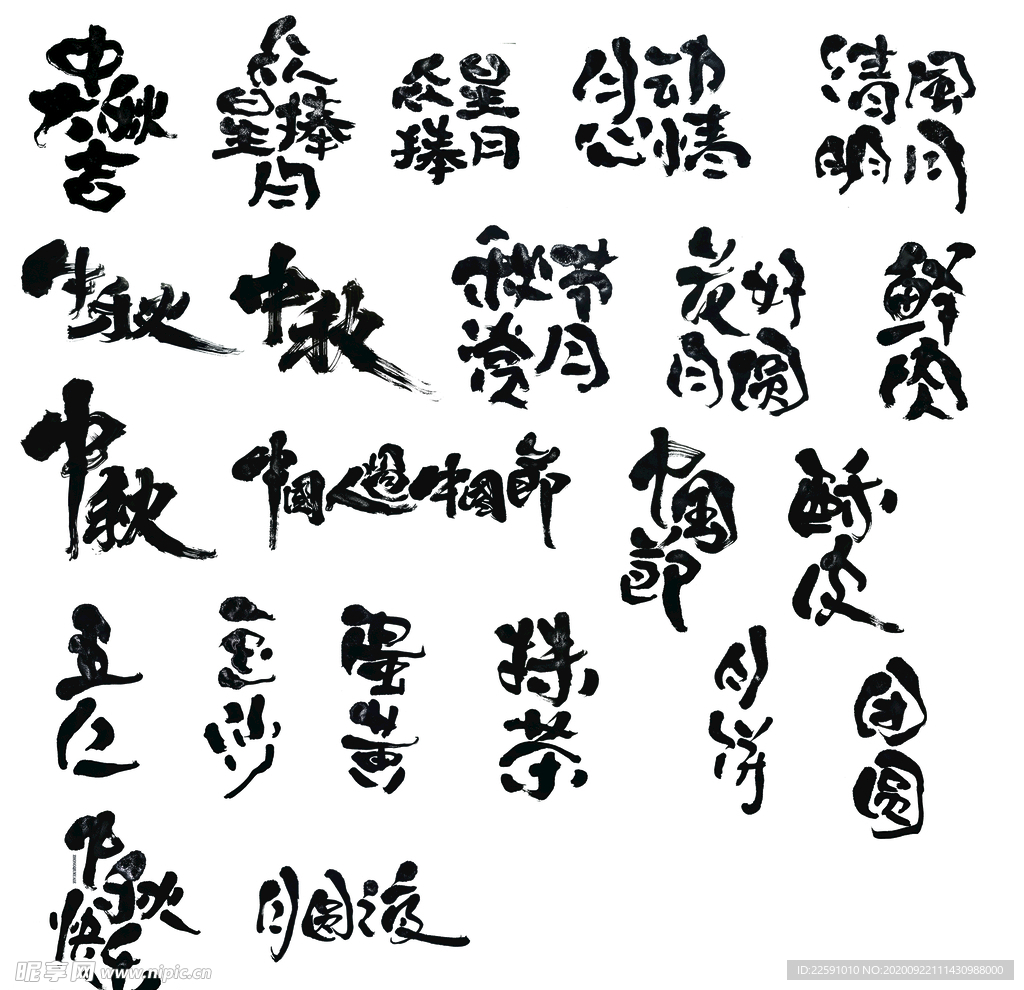 中秋大吉
众星捧月
众星捧月
月动心情
清風明月
中秋
中秋
秋节赏月
花好月圆
鲜肉
中秋
中國人過中國節
中国節
酥皮
五仁
豆沙
蛋黄
抹茶
月饼
团圆
中秋
月圆之夜
昵享网 www.nipic.cn
ID:22591010 NO:20200922111430988000